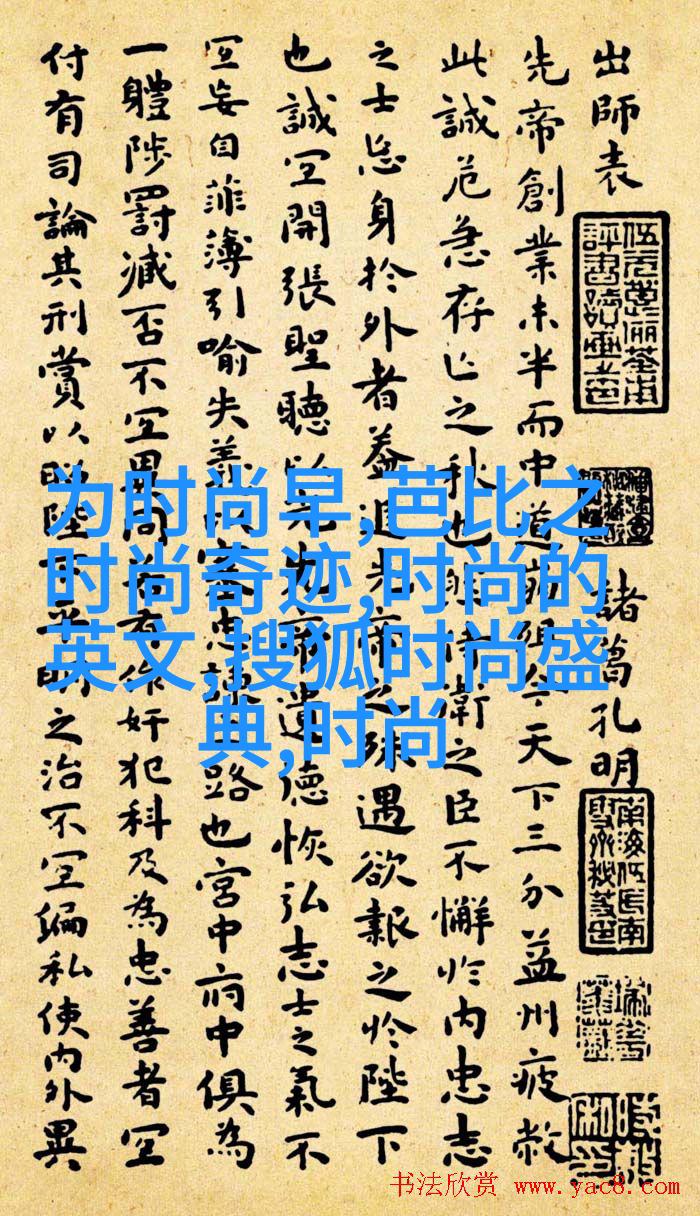 出師表
諸葛孔明
先帝創業未半而中道崩殂今天下三分益州疲敝
此誠危急存亡之秋也然侍衛之臣不懈於內忠志
之士忘身於外者蓋追先帝之殊遇欲報之於陛下
也誠宜開張聖聽以光先帝遺德恢弘志士之氣不
宜妄自菲薄引喻失義以塞忠諫之路也宮中府中俱為
一體陟罰臧否不宜異同若有作奸犯科及為忠善者宜
付有司論其刑賞以昭陛下平明之治不宜偏私使內外異
为时尚早,芭比之
时尚奇迹,时尚的
英文,搜狐时尚盛
典,时尚
书法欣赏 www.yac8.com